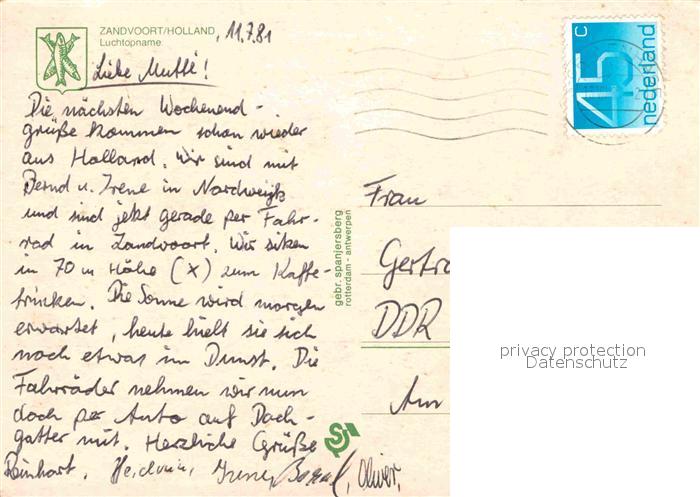 ZANDVOORT/HOLLAND, 11.7.81
Luchtopname
Liebe Mutti!
Die nächsten Wochenend-
grüße kommen schon wieder
aus Holland. Wir sind mit
Bernd u. Irene in Nordweigk
und sind jetzt gerade per Fahr-
rad in Zandvoort. Wir sitzen
in 70 m Höhe (X) zum Kaffe-
trinken. Die Sonne wird morgen
erwartet, heute hielt sie sich
noch etwas im Dunst. Die
Fahrräder nehmen wir nun
doch per Auto auf Dach-
gatter mit. Herzliche Grüße
Reinhart, Irene, Bernd, Oliver.
gebr. spanjersberg
rotterdam - antwerpen
45 C
nederland
Frau
Gertra
DDR
Am
privacy protection
Datenschutz